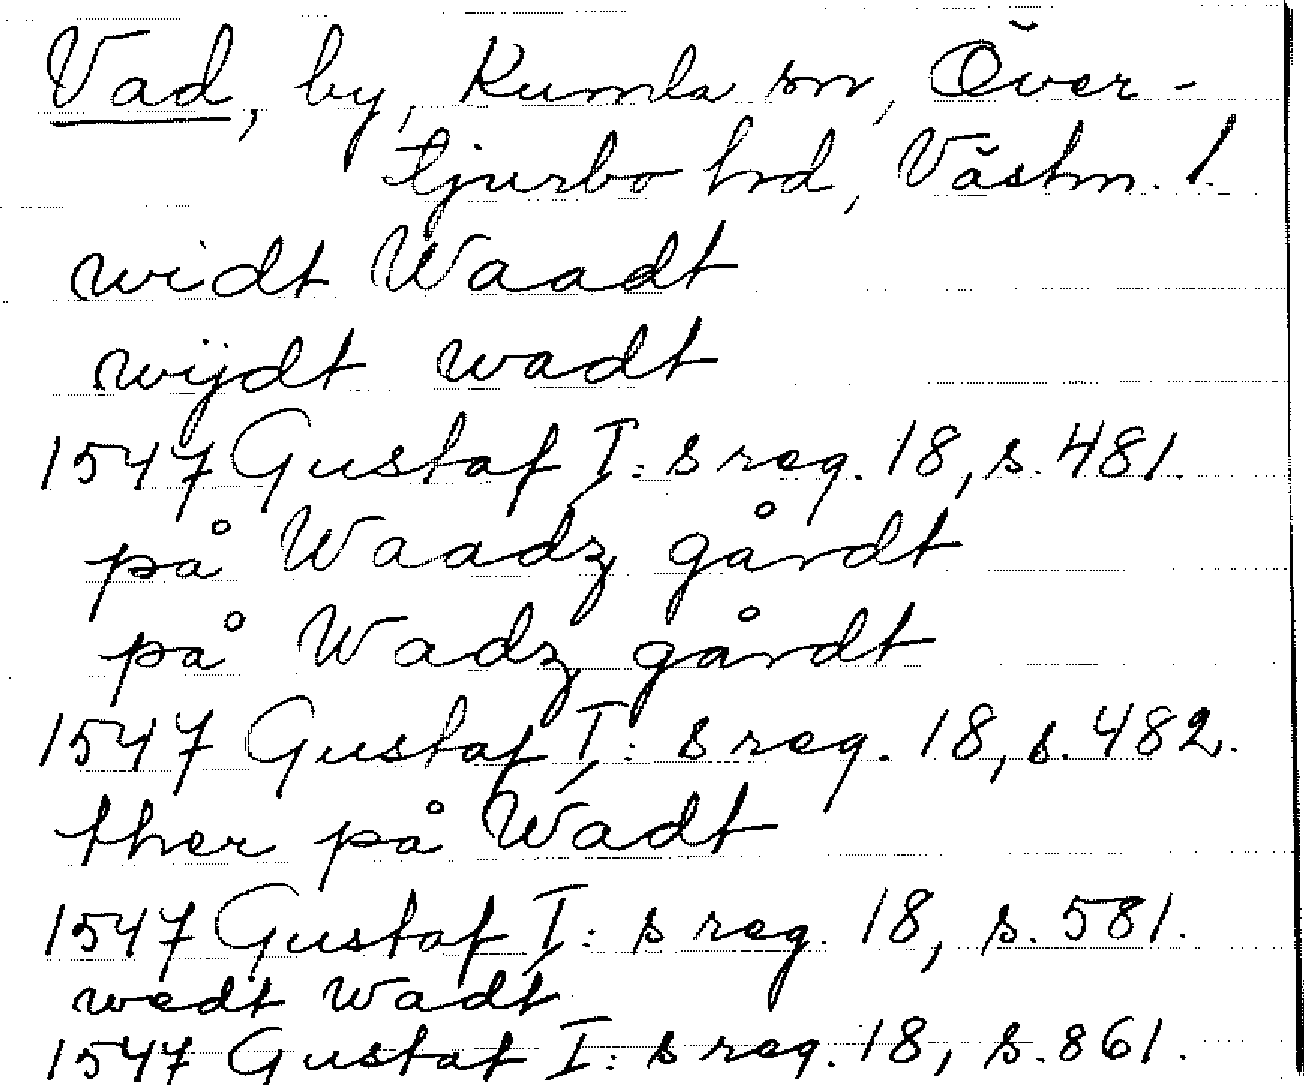 Vad, by, Kumla sn, Över-
tjurbo hd, Västm. l.
widt Waadt
wijdt wadt
1547 Gustaf I:s reg. 18, s. 481.
på Waadz gårdt
på Wadz gårdt
1547 Gustaf I:s reg. 18, s. 482.
ther på Wadt
1547 Gustaf I:s reg. 18, s. 581.
wedt Wadt
1547 Gustaf I:s reg. 18, s. 861.